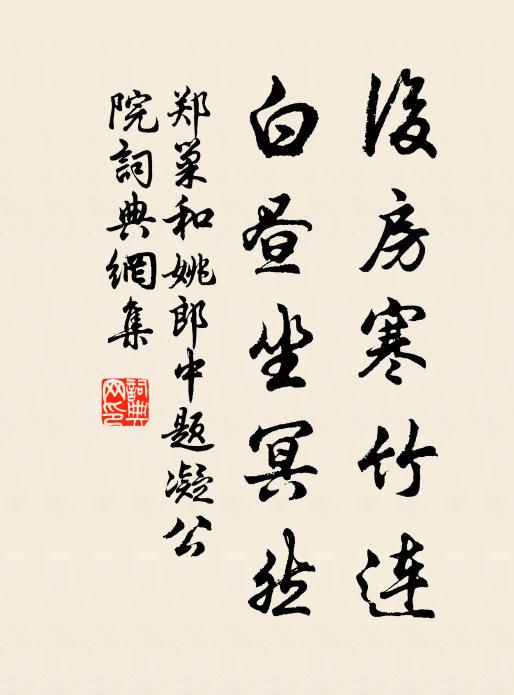 後房寒竹連
白昼坐冥然
郑巢和姚郎中题凝公
院詞典網集
詞典
网印